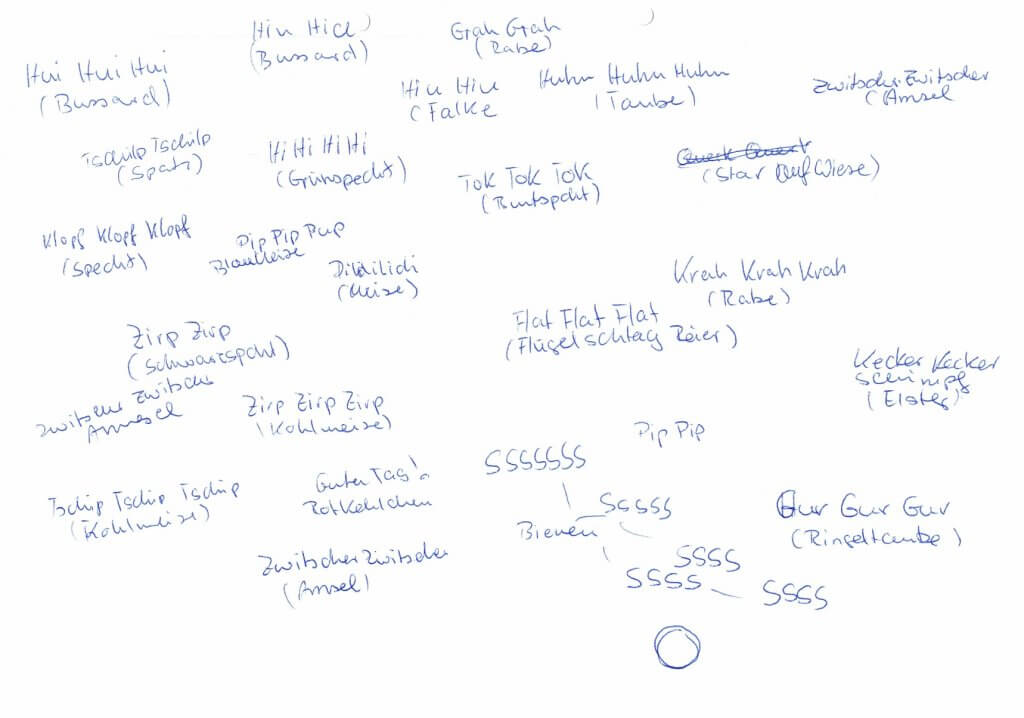 Hiu Hiu
(Bussard)
Grah Grah
(Rabe)
Hui Hui Hui
(Bussard)
Hiu Hiu
(Falke
Huhu Huhu Huhu
(Taube)
Zwitscher Zwitscher
(Amsel
Tschilp Tschilp
(Spatz)
Hi Hi Hi Hi
(Grünspecht)
Tok Tok Tok
(Buntspcht)
(Star auf Wiese)
Klopf Klopf Klopf
(Specht)
Pip Pip Pip
Blaumeise
(Meise)
Krah Krah Krah
(Rabe)
Flat Flat Flat
(Flügelschlag Reier)
Zirp Zirp
(Schwarzspcht)
Kecker Kecker
schimpf
(Elster)
Zwitscher Zwitscher
Zirp Zirp Zirp
(Kohlmeise)
Pip Pip
SSSSSSS
Tschip Tschip Tschip
(Kohlmeise)
Guten Tag!
Rotkehlchen
SSSSS
Bienen
Gur Gur Gur
(Ringeltaube)
Zwitscher Zwitscher
(Amsel)
SSSS
SSSS
SSSS